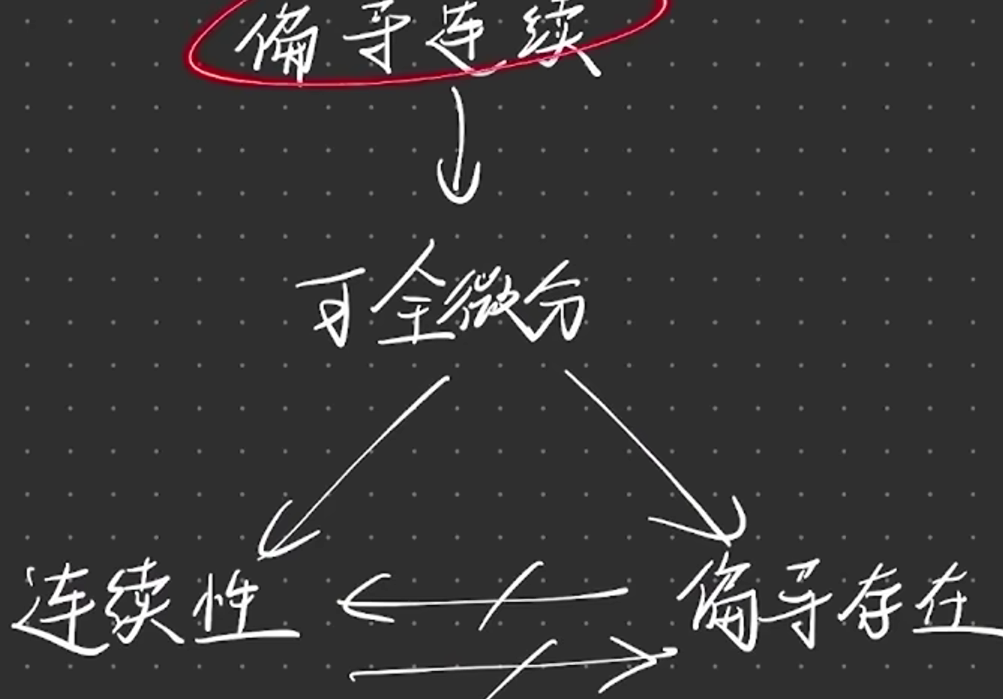 偏导连续
可全微分
连续性 偏导存在